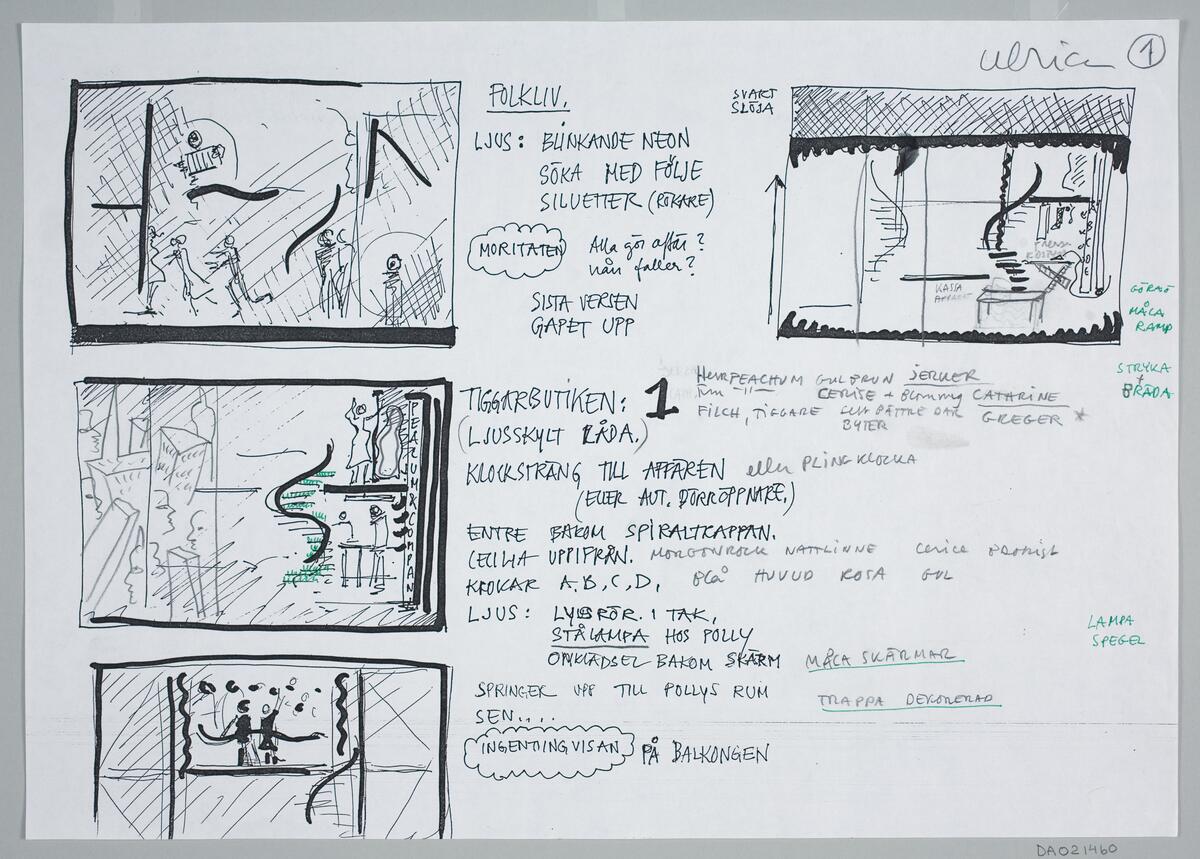 ulrica 1
FOLKLIV.
LJUS: BLINKANDE NEON
SÖKA MED FÖLJE
SILUETTER (RÖKARE)
MORITATEN
Alla gör affär?
nån faller?
SISTA VERSEN
GAPET UPP
SVART
SLÖJA
KASSA
APPARAT
MÅLA
RAMP
STRYKA
+
BRÄDA
PEACUM & COMPAN
TIGGARBUTIKEN: 1
(LJUSSKYLT LÅDA.)
HERR PEACHUM GULBRUN JERKER
FRU -"- CERISE + Blommig CATHARINE
FILCH, TIGGARE BÄTTRE DÄR GREGER *
BYTER
KLOCKSTRÄNG TILL AFFÄREN eller PLINGKLOCKA
(ELLER AUT. DÖRRÖPPNARE.)
ENTRE BAKOM SPIRALTRAPPAN.
CECILIA UPPIFRÅN. MORGONROCK NATTLINNE Cerice
KROKAR A, B, C, D, BLÅ HUVUD ROSA GUL
LJUS: LYSRÖR. I TAK,
STÅLAMPA HOS POLLY
OMKLÄDSEL BAKOM SKÄRM MÅLA SKÄRMAR
LAMPA
SPEGEL
SPRINGER UPP TILL POLLYS RUM TRAPPA DEKORERAD
SEN....
INGENTINGVISAN PÅ BALKONGEN
DA021460